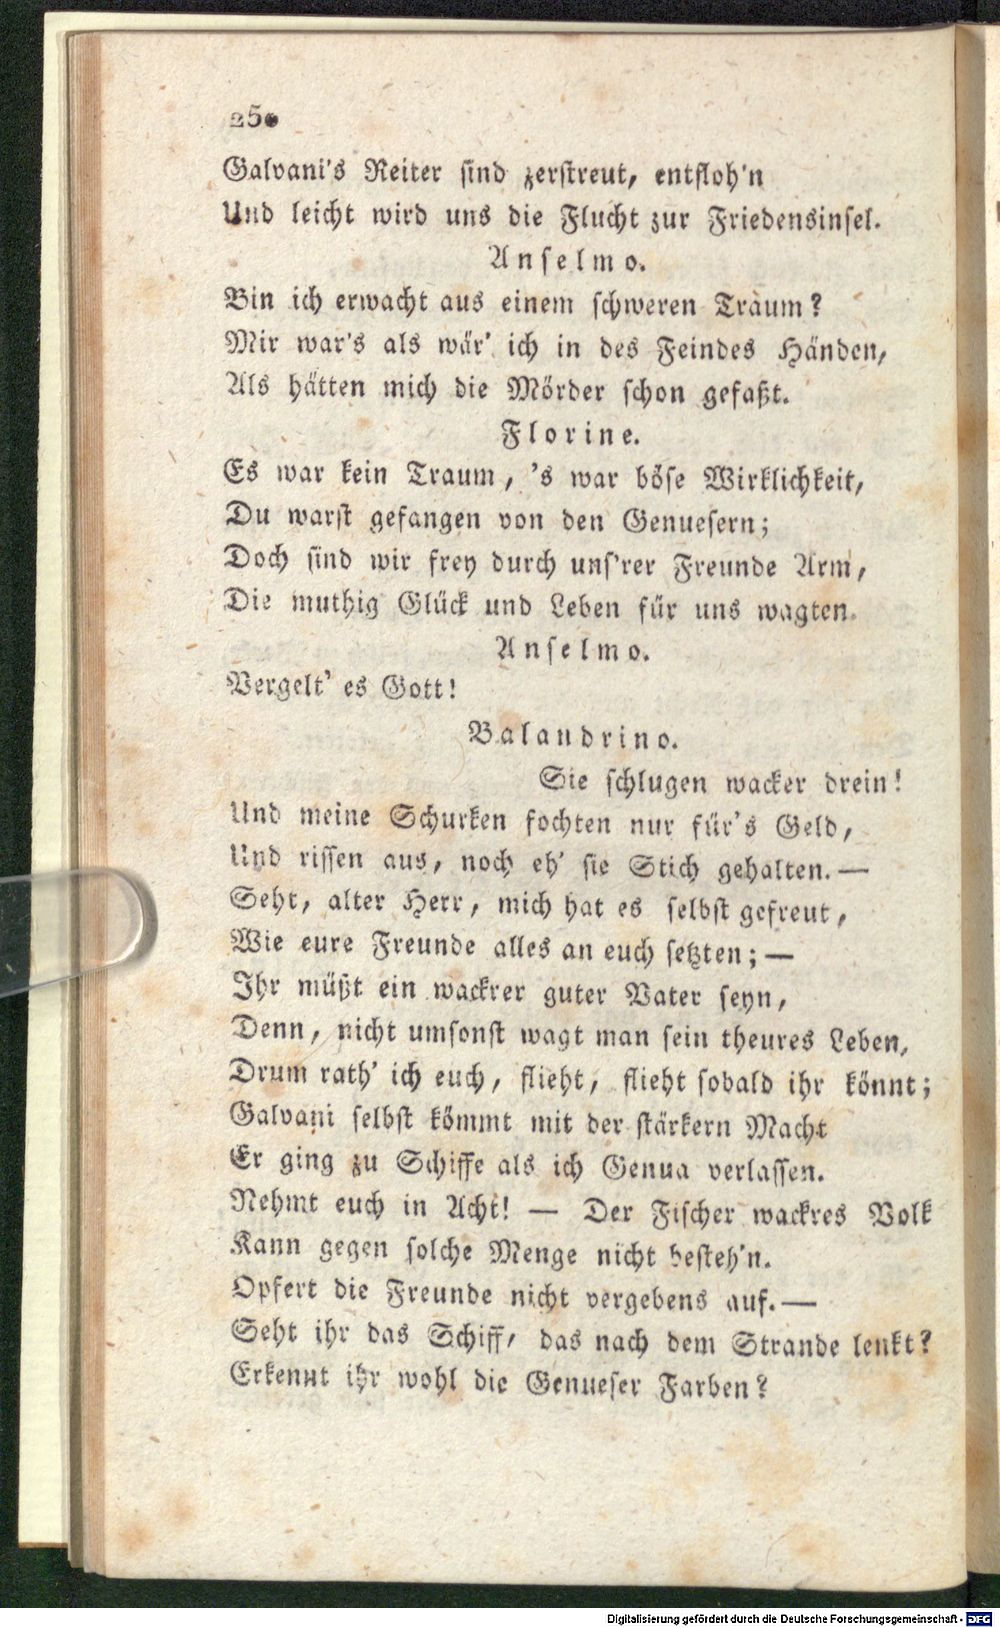 250
Galvani's Reiter sind zerstreut, entfloh'n
Und leicht wird uns die Flucht zur Friedensinsel.
Anselmo.
Bin ich erwacht aus einem schweren Traum?
Mir war's als wär' ich in des Feindes Händen,
Als hätten mich die Mörder schon gefaßt.
Florine.
Es war kein Traum, 's war böse Wirklichkeit,
Du warst gefangen von den Genuesern;
Doch sind wir frey durch uns'rer Freunde Arm,
Die muthig Glück und Leben für uns wagten.
Anselmo.
Vergelt' es Gott!
Balandrino.
Sie schlugen wacker drein!
Und meine Schurken fochten nur für's Geld,
Und rissen aus, noch eh' sie Stich gehalten. —
Seht, alter Herr, mich hat es selbst gefreut,
Wie eure Freunde alles an euch setzten; —
Ihr müßt ein wackrer guter Vater seyn,
Denn, nicht umsonst wagt man sein theures Leben,
Drum rath' ich euch, flieht, flieht sobald ihr könnt;
Galvani selbst kömmt mit der stärkern Macht
Er ging zu Schiffe als ich Genua verlassen.
Nehmt euch in Acht! — Der Fischer wackres Volk
Kann gegen solche Menge nicht besteh'n.
Opfert die Freunde nicht vergebens auf. —
Seht ihr das Schiff, das nach dem Strande lenkt?
Erkennt ihr wohl die Genueser Farben?
Digitalisierung gefördert durch die Deutsche Forschungsgemeinschaft - DFG